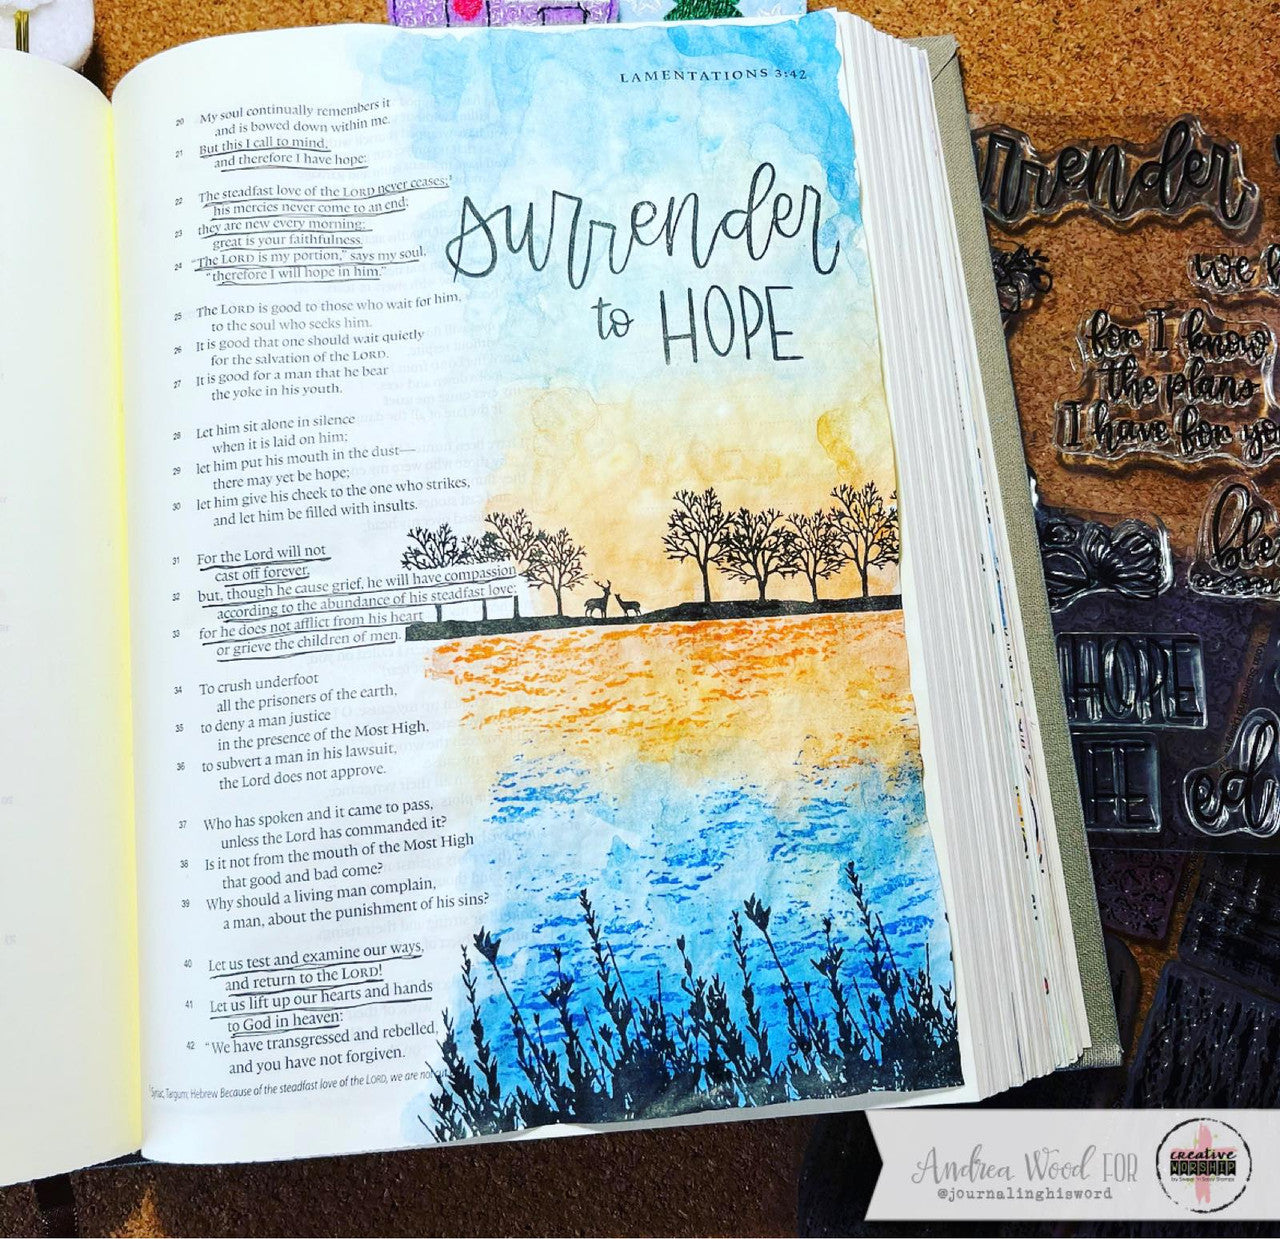 LAMENTATIONS 3:42
20 My soul continually remembers it
and is bowed down within me.
21 But this I call to mind,
and therefore I have hope:
22 The steadfast love of the LORD never ceases;¹
his mercies never come to an end;
23 they are new every morning;
great is your faithfulness.
24 “The LORD is my portion,” says my soul,
“therefore I will hope in him.”
25 The LORD is good to those who wait for him,
to the soul who seeks him.
26 It is good that one should wait quietly
for the salvation of the LORD.
27 It is good for a man that he bear
the yoke in his youth.
28 Let him sit alone in silence
when it is laid on him;
29 let him put his mouth in the dust—
there may yet be hope;
30 let him give his cheek to the one who strikes,
and let him be filled with insults.
31 For the Lord will not
cast off forever,
32 but, though he cause grief, he will have compassion
according to the abundance of his steadfast love;
33 for he does not afflict from his heart
or grieve the children of men.
34 To crush underfoot
all the prisoners of the earth,
35 to deny a man justice
in the presence of the Most High,
36 to subvert a man in his lawsuit,
the Lord does not approve.
37 Who has spoken and it came to pass,
unless the Lord has commanded it?
38 Is it not from the mouth of the Most High
that good and bad come?
39 Why should a living man complain,
a man, about the punishment of his sins?
40 Let us test and examine our ways,
and return to the LORD!
41 Let us lift up our hearts and hands
to God in heaven:
42 “We have transgressed and rebelled,
and you have not forgiven.
¹ Syriac, Targum; Hebrew Because of the steadfast love of the LORD, we are not cut
surrender
to HOPE
surrender
we
for I know
the plans
I have for yo
ble
HOPE
ed
Andrea Wood FOR
@journalinghisword
creative
WORSHIP
by Sweet 'n Sassy Stamps